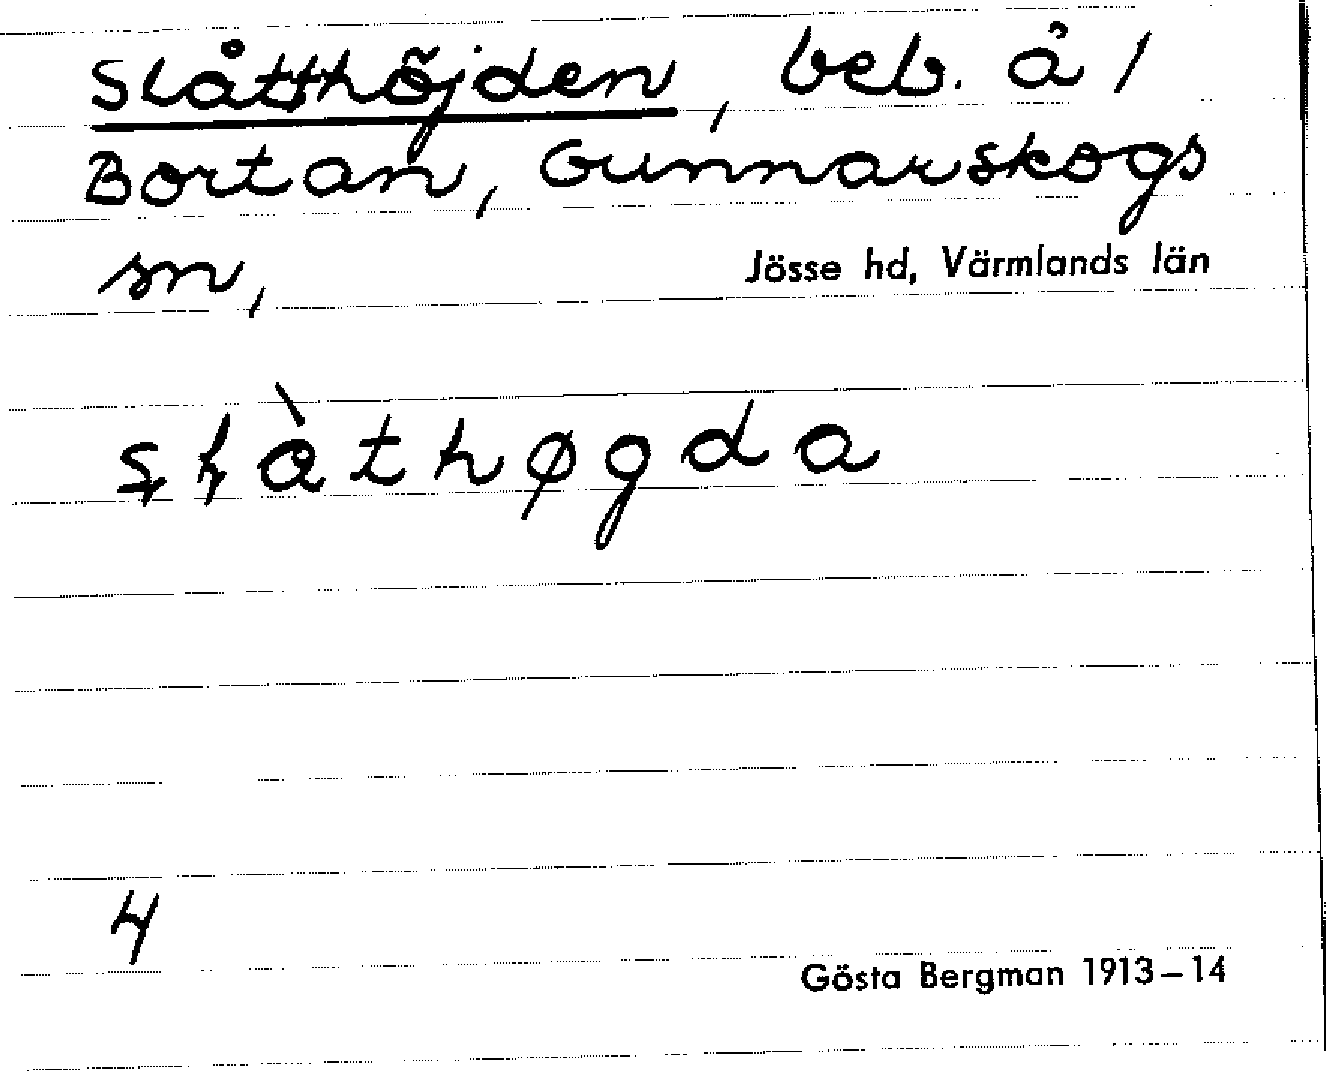 Slåtthöjden, beb. å /
Bortan, Gunnarskogs
sn,
Jösse hd, Värmlands län
4
Gösta Bergman 1913–14